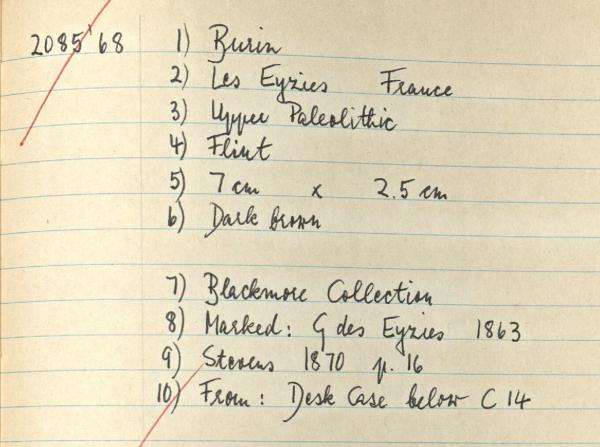 2085'68 1) Burin
2) Les Eyzies France
3) Upper Paleolithic
4) Flint
5) 7 cm x 2.5 cm
6) Dark brown
7) Blackmore Collection
8) Marked: G des Eyzies 1863
9) Stevens 1870 p. 16
10) From: Desk Case below C 14